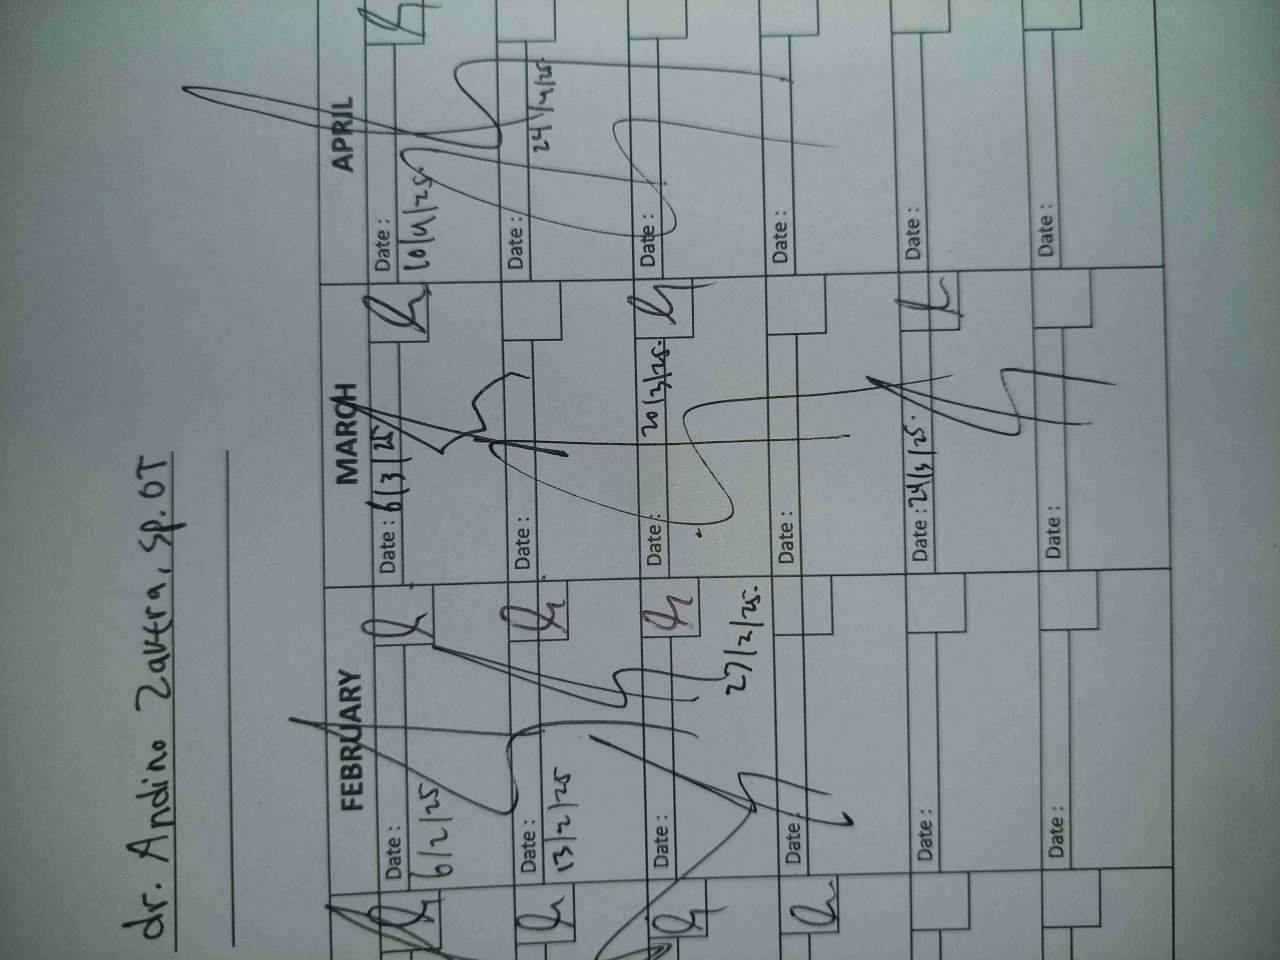 dr. Andino Zavtra, Sp.OT
FEBRUARY MARCH APRIL
Date : Date : 6/3/25 Date :
6/2/25 10/4/25.
Date : Date : Date :
13/2/25 24/4/25.
Date : Date : 20/3/25. Date :
27/2/25.
Date : Date : Date :
Date : Date : 24/3/25. Date :
Date : Date : Date :